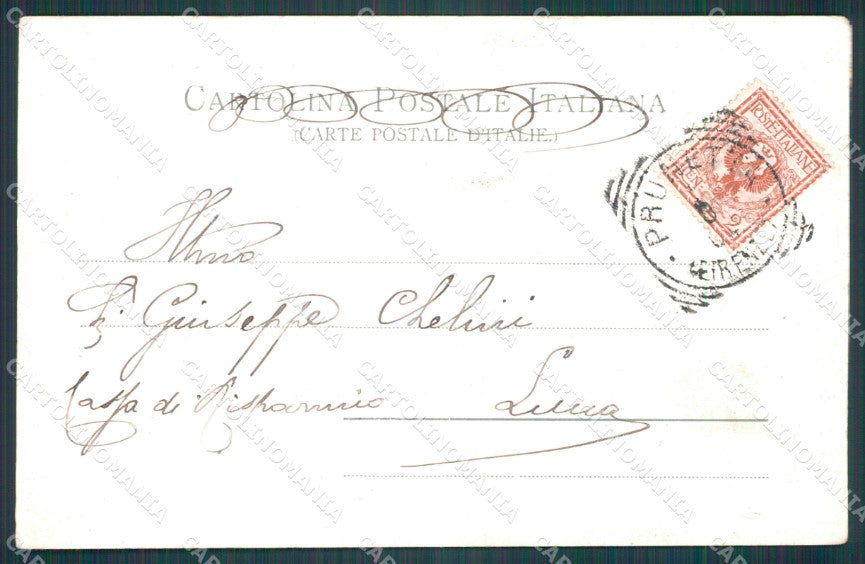 CARTOLINA POSTALE ITALIANA
(CARTE POSTALE D'ITALIE.)
POSTE·ITALIANE
CENT 2
PRUNETTA
(FIRENZE)
Illmo
Giuseppe Chelini
Cassa di Risparmio Lucca
CARTOLINOMANIA